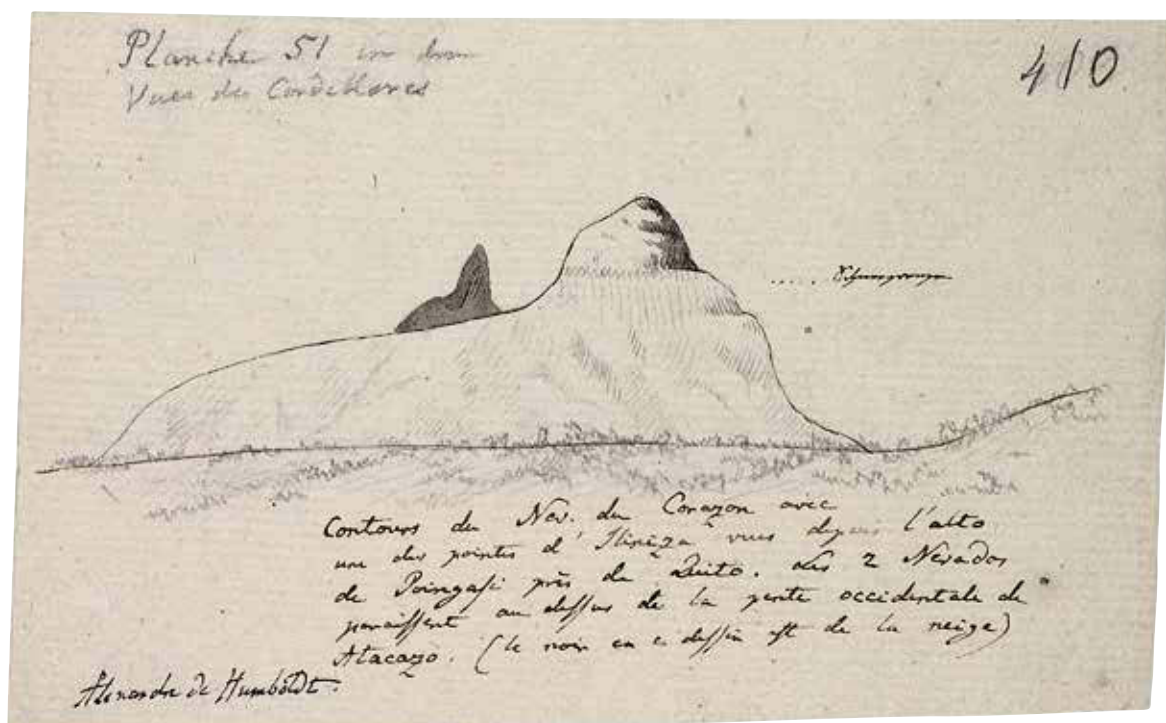 Planche 51 in dem
Vues des Cordilleres
410
Schneegrenze
Contours du Nev. du Corazon avec
une des pointes d'Ilinèza vues depuis l'alto
de Poingasi près de Quito. Les 2 Nevados
paraissent au dessus de la pente occidentale de
Atacazo. (le noir en ce dessin est de la neige)
Alexandre de Humboldt.